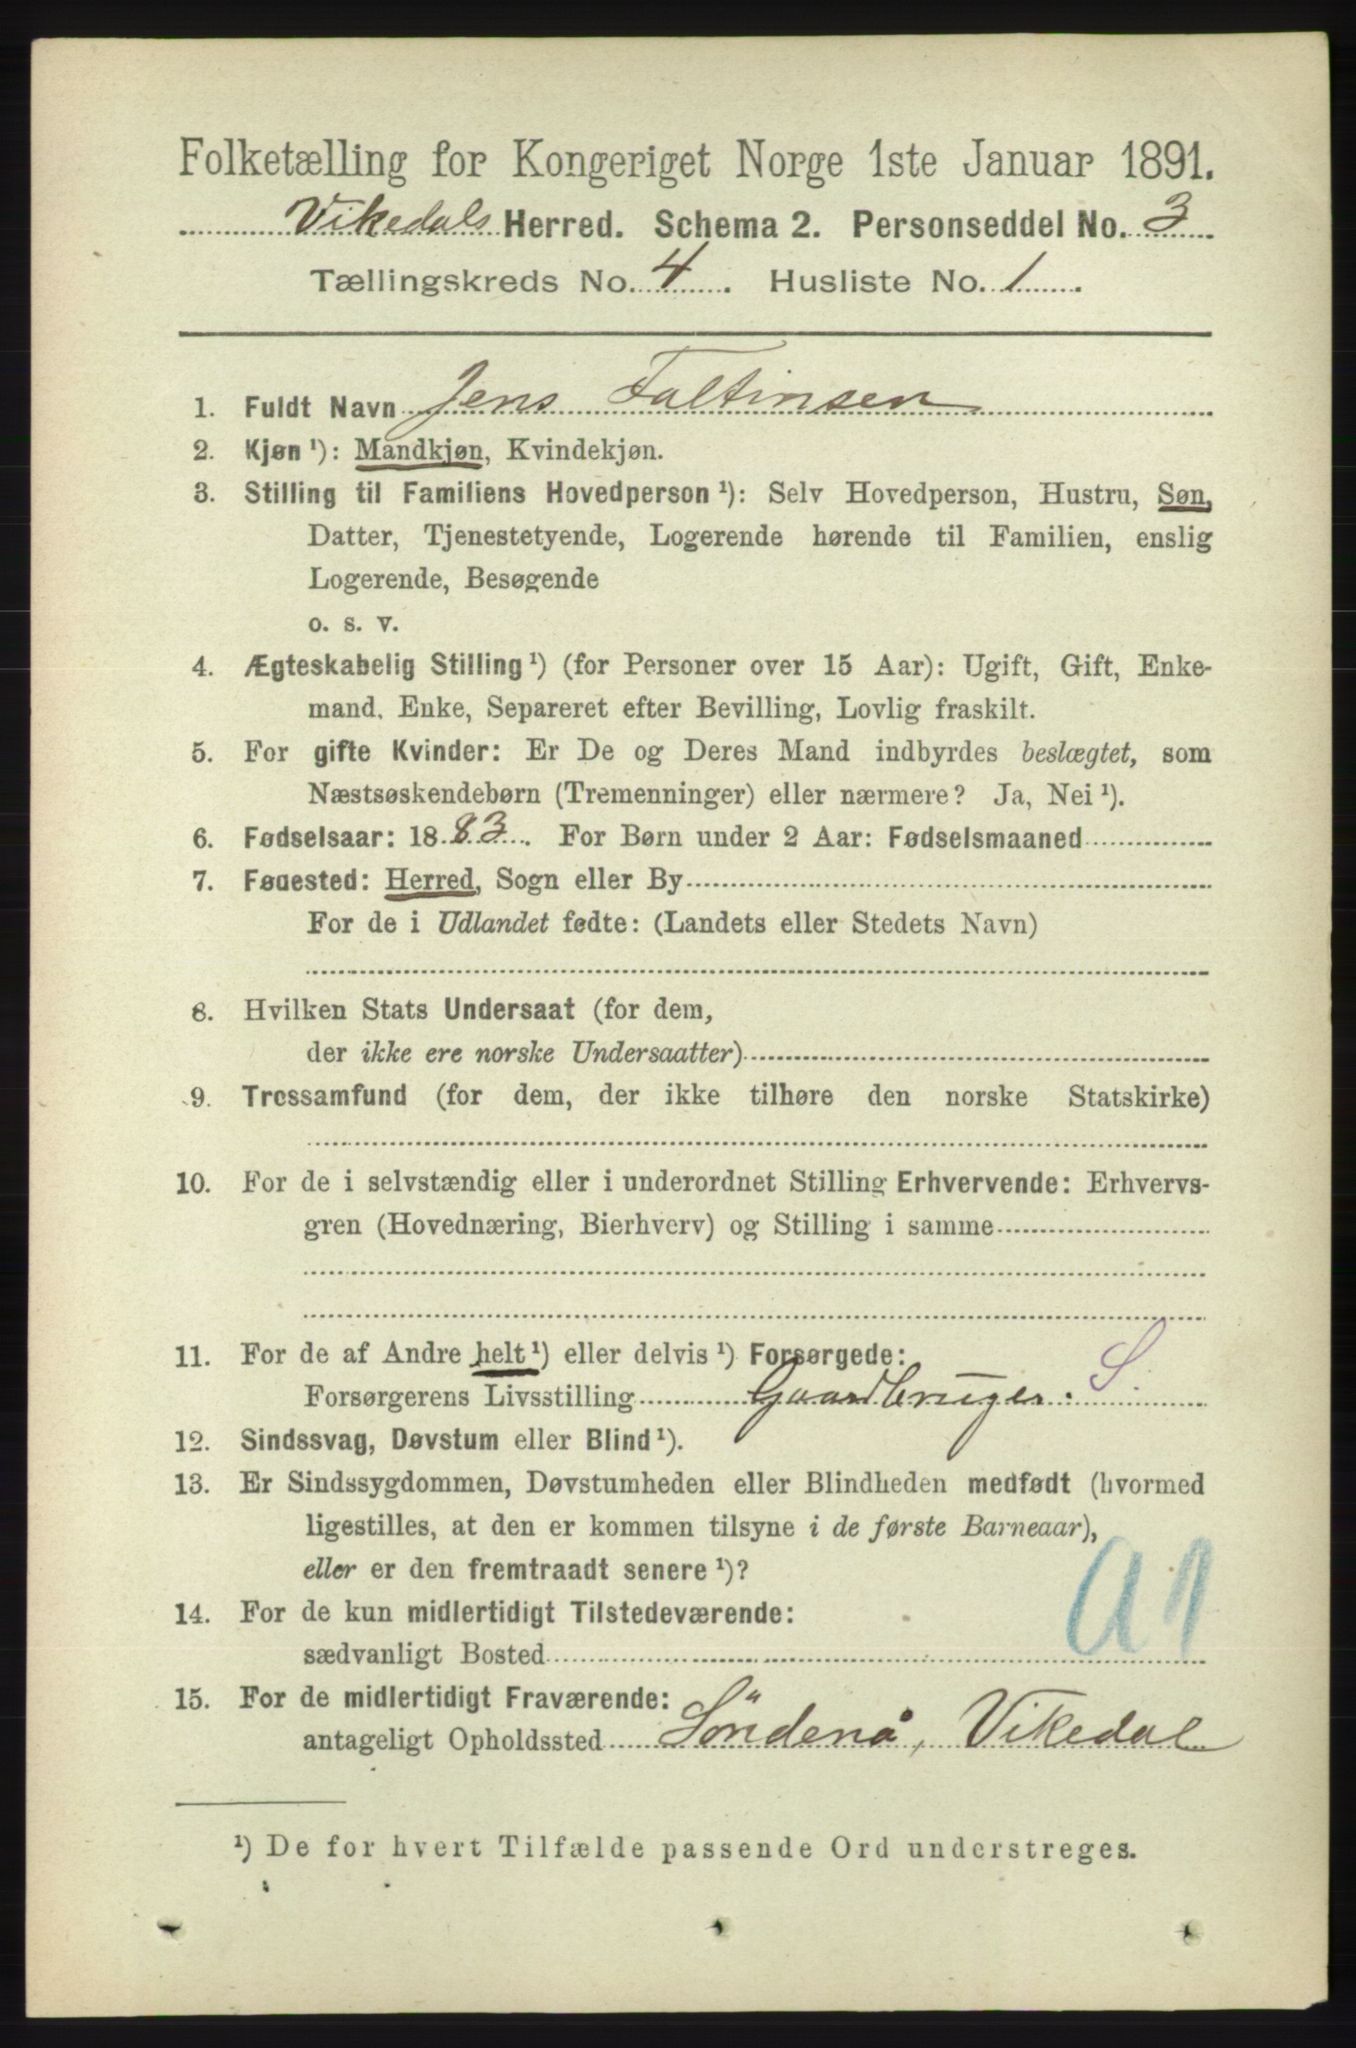 Folketælling for Kongeriget Norge 1ste Januar 1891.
Vikedals Herred. Schema 2. Personseddel No. 3
Tællingskreds No. 4. Husliste No. 1.
1. Fuldt Navn Jens Faltinsen
2. Kjøn ¹): Mandkjøn, Kvindekjøn.
3. Stilling til Familiens Hovedperson ¹): Selv Hovedperson, Hustru, Søn,
Datter, Tjenestetyende, Logerende hørende til Familien, enslig
Logerende, Besøgende
o. s. v.
4. Ægteskabelig Stilling ¹) (for Personer over 15 Aar): Ugift, Gift, Enke-
mand, Enke, Separeret efter Bevilling, Lovlig fraskilt.
5. For gifte Kvinder: Er De og Deres Mand indbyrdes beslægtet, som
Næstsøskendebørn (Tremenninger) eller nærmere? Ja, Nei ¹).
6. Fødselsaar: 1883. For Børn under 2 Aar: Fødselsmaaned
7. Fødested: Herred, Sogn eller By
For de i Udlandet fødte: (Landets eller Stedets Navn)
8. Hvilken Stats Undersaat (for dem,
der ikke ere norske Undersaatter)
9. Trossamfund (for dem, der ikke tilhøre den norske Statskirke)
10. For de i selvstændig eller i underordnet Stilling Erhvervende: Erhvervs-
gren (Hovednæring, Bierhverv) og Stilling i samme
11. For de af Andre helt ¹) eller delvis ¹) Forsørgede:
Forsørgerens Livsstilling Gaardbruger. S.
12. Sindssvag, Døvstum eller Blind ¹).
13. Er Sindssygdommen, Døvstumheden eller Blindheden medfødt (hvormed
ligestilles, at den er kommen tilsyne i de første Barneaar),
eller er den fremtraadt senere ¹)?
A 1
14. For de kun midlertidigt Tilstedeværende:
sædvanligt Bosted
15. For de midlertidigt Fraværende:
antageligt Opholdssted Söndenå, Vikedal
¹) De for hvert Tilfælde passende Ord understreges.